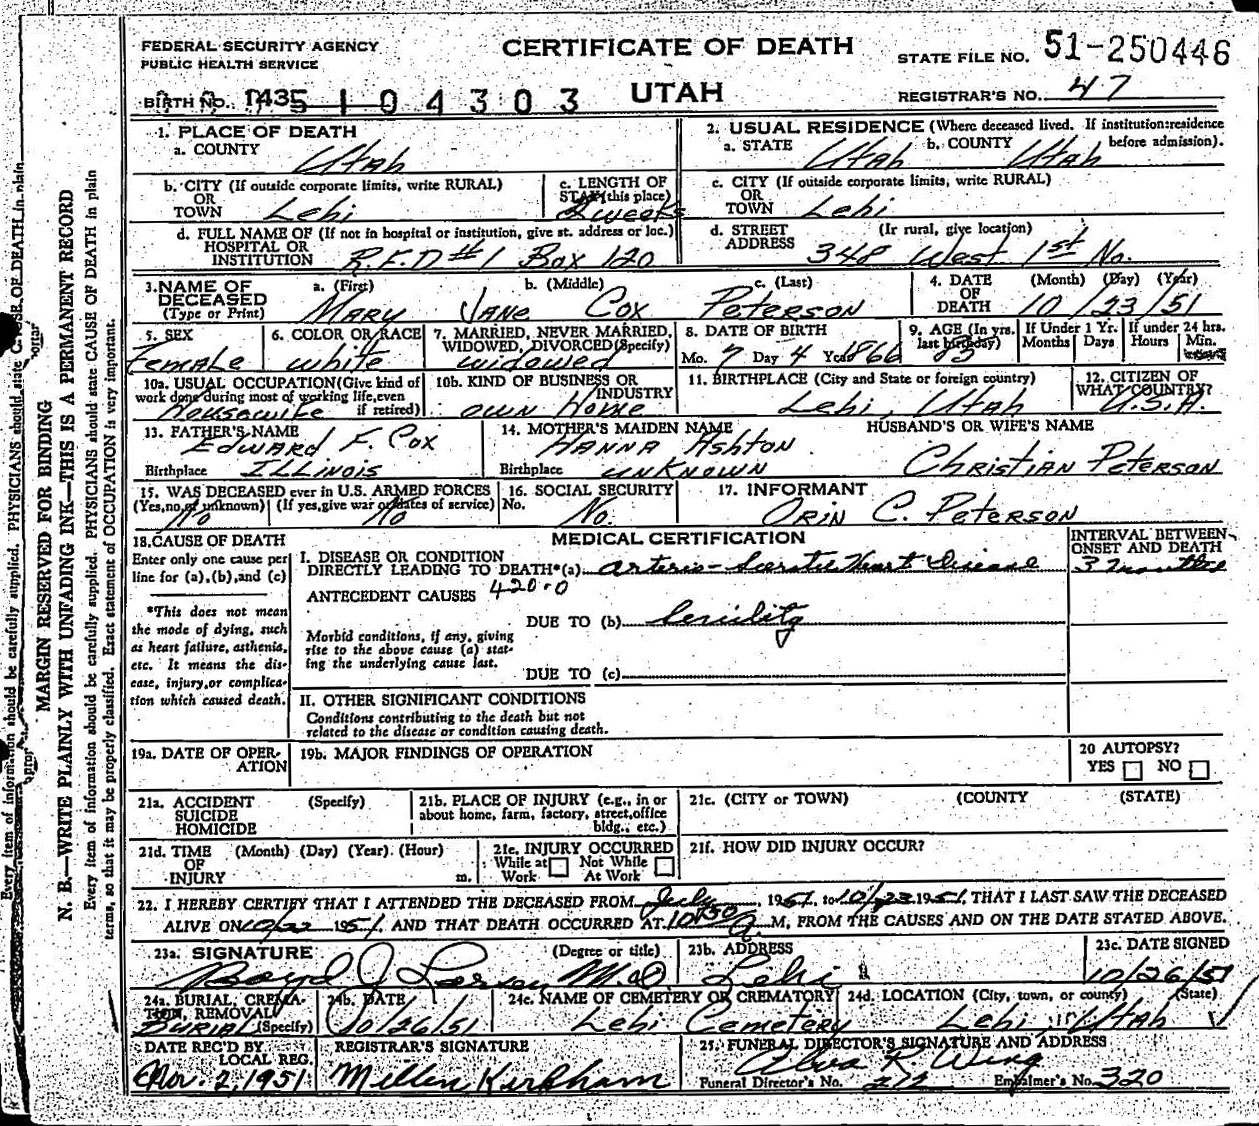 FEDERAL SECURITY AGENCY
PUBLIC HEALTH SERVICE
CERTIFICATE OF DEATH
UTAH
STATE FILE NO. 51-250446
REGISTRAR'S NO. 47
BIRTH NO. 104303
1. PLACE OF DEATH
a. COUNTY Utah
b. CITY (If outside corporate limits, write RURAL)
OR
TOWN Lehi
c. LENGTH OF
STAY (this place)
2 weeks
d. FULL NAME OF (If not in hospital or institution, give st. address or loc.)
HOSPITAL OR
INSTITUTION R.F.D #1 Box 120
2. USUAL RESIDENCE (Where deceased lived. If institution:residence
before admission).
a. STATE Utah b. COUNTY Utah
c. CITY (If outside corporate limits, write RURAL)
OR
TOWN Lehi
d. STREET (If rural, give location)
ADDRESS 348 West 1st No.
3. NAME OF
DECEASED
(Type or Print)
a. (First) b. (Middle) c. (Last)
MARY JANE COX PETERSON
4. DATE
OF
DEATH
(Month) (Day) (Year)
10/23/51
5. SEX
Female
6. COLOR OR RACE
white
7. MARRIED, NEVER MARRIED,
WIDOWED, DIVORCED (Specify)
widowed
8. DATE OF BIRTH
Mo. 7 Day 4 Year 1866
9. AGE (In yrs.
last birthday)
85
If Under 1 Yr.
Months Days
If under 24 hrs.
Hours Min.
10a. USUAL OCCUPATION (Give kind of
work done during most of working life, even
if retired)
Housewife
10b. KIND OF BUSINESS OR
INDUSTRY
OWN Home
11. BIRTHPLACE (City and State or foreign country)
Lehi, Utah
12. CITIZEN OF
WHAT COUNTRY?
U.S.A.
13. FATHER'S NAME
EDWARD F. COX
Birthplace ILLINOIS
14. MOTHER'S MAIDEN NAME
HANNA ASHTON
Birthplace UNKNOWN
HUSBAND'S OR WIFE'S NAME
CHRISTIAN PETERSON
15. WAS DECEASED ever in U.S. ARMED FORCES
(Yes, no, or unknown) (If yes, give war or dates of service)
No No
16. SOCIAL SECURITY
No. No.
17. INFORMANT
ORIN C. PETERSON
18. CAUSE OF DEATH
Enter only one cause per
line for (a), (b), and (c)
*This does not mean
the mode of dying, such
as heart failure, asthenia,
etc. It means the dis-
ease, injury, or complica-
tion which caused death.
MEDICAL CERTIFICATION
I. DISEASE OR CONDITION
DIRECTLY LEADING TO DEATH*(a) Arterio-Sclerotic Heart Disease
INTERVAL BETWEEN
ONSET AND DEATH
3 months
ANTECEDENT CAUSES 420.0
DUE TO (b) Senility
Morbid conditions, if any, giving
rise to the above cause (a) stat-
ing the underlying cause last.
DUE TO (c)
II. OTHER SIGNIFICANT CONDITIONS
Conditions contributing to the death but not
related to the disease or condition causing death.
19a. DATE OF OPER-
ATION
19b. MAJOR FINDINGS OF OPERATION
20 AUTOPSY?
YES NO
21a. ACCIDENT (Specify)
SUICIDE
HOMICIDE
21b. PLACE OF INJURY (e.g., in or
about home, farm, factory, street, office
bldg., etc.)
21c. (CITY or TOWN) (COUNTY (STATE)
21d. TIME (Month) (Day) (Year) (Hour)
OF
INJURY m.
21e. INJURY OCCURRED
While at Not While
Work At Work
21f. HOW DID INJURY OCCUR?
22. I HEREBY CERTIFY THAT I ATTENDED THE DECEASED FROM July, 1951 to 10/23 1951, THAT I LAST SAW THE DECEASED
ALIVE ON 10/22 1951, AND THAT DEATH OCCURRED AT 10:30 M, FROM THE CAUSES AND ON THE DATE STATED ABOVE.
23a. SIGNATURE (Degree or title)
Boyd J Larsen M.D
23b. ADDRESS
Lehi
23c. DATE SIGNED
10/26/51
24a. BURIAL, CREMA-
TION, REMOVAL
BURIAL (Specify)
24b. DATE
10/26/51
24c. NAME OF CEMETERY OR CREMATORY
Lehi Cemetery
24d. LOCATION (City, town, or county) (State)
Lehi, Utah
DATE REC'D BY
LOCAL REG.
Nov. 2, 1951
REGISTRAR'S SIGNATURE
Kirkham
25. FUNERAL DIRECTOR'S SIGNATURE AND ADDRESS
Alva R Wing
Funeral Director's No. 212 Embalmer's No. 320
MARGIN RESERVED FOR BINDING
N. B.—WRITE PLAINLY WITH UNFADING INK—THIS IS A PERMANENT RECORD
Every item of information should be carefully supplied. PHYSICIANS should state CAUSE OF DEATH in plain
terms, so that it may be properly classified. Exact statement of OCCUPATION is very important.
Every item of information should be carefully supplied. PHYSICIANS should state CAUSE OF DEATH in plain